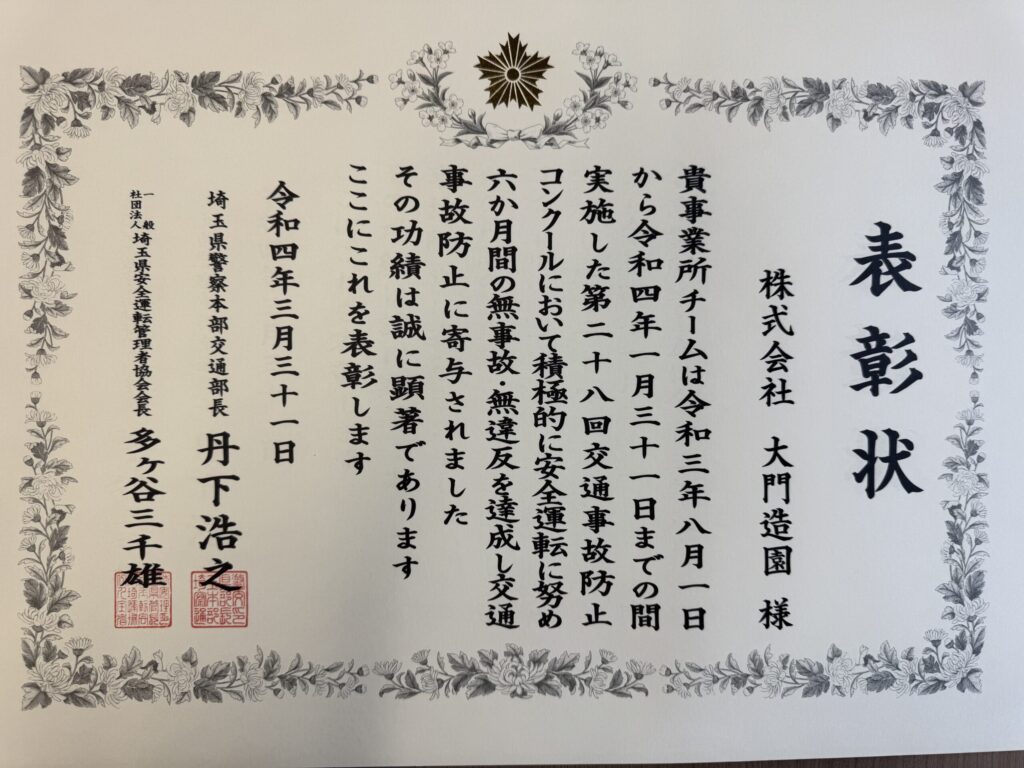 表彰状
株式会社 大門造園 様
貴事業所チームは令和三年八月一日
から令和四年一月三十一日までの間
実施した第二十八回交通事故防止
コンクールにおいて積極的に安全運転に努め
六か月間の無事故・無違反を達成し交通
事故防止に寄与されました
その功績は誠に顕著であります
ここにこれを表彰します
令和四年三月三十一日
埼玉県警察本部交通部長 丹下浩之
一般社団法人 埼玉県安全運転管理者協会会長 多ヶ谷三千雄